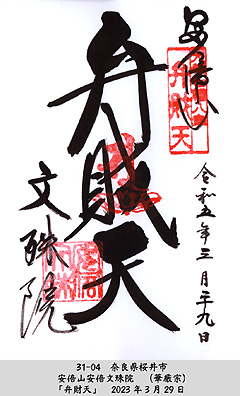 安倍山
弁財天
弁財天
令和五年三月二十九日
文殊院
31-04　奈良県桜井市
安倍山安倍文殊院　（華厳宗）
「弁財天」　2023年3月29日